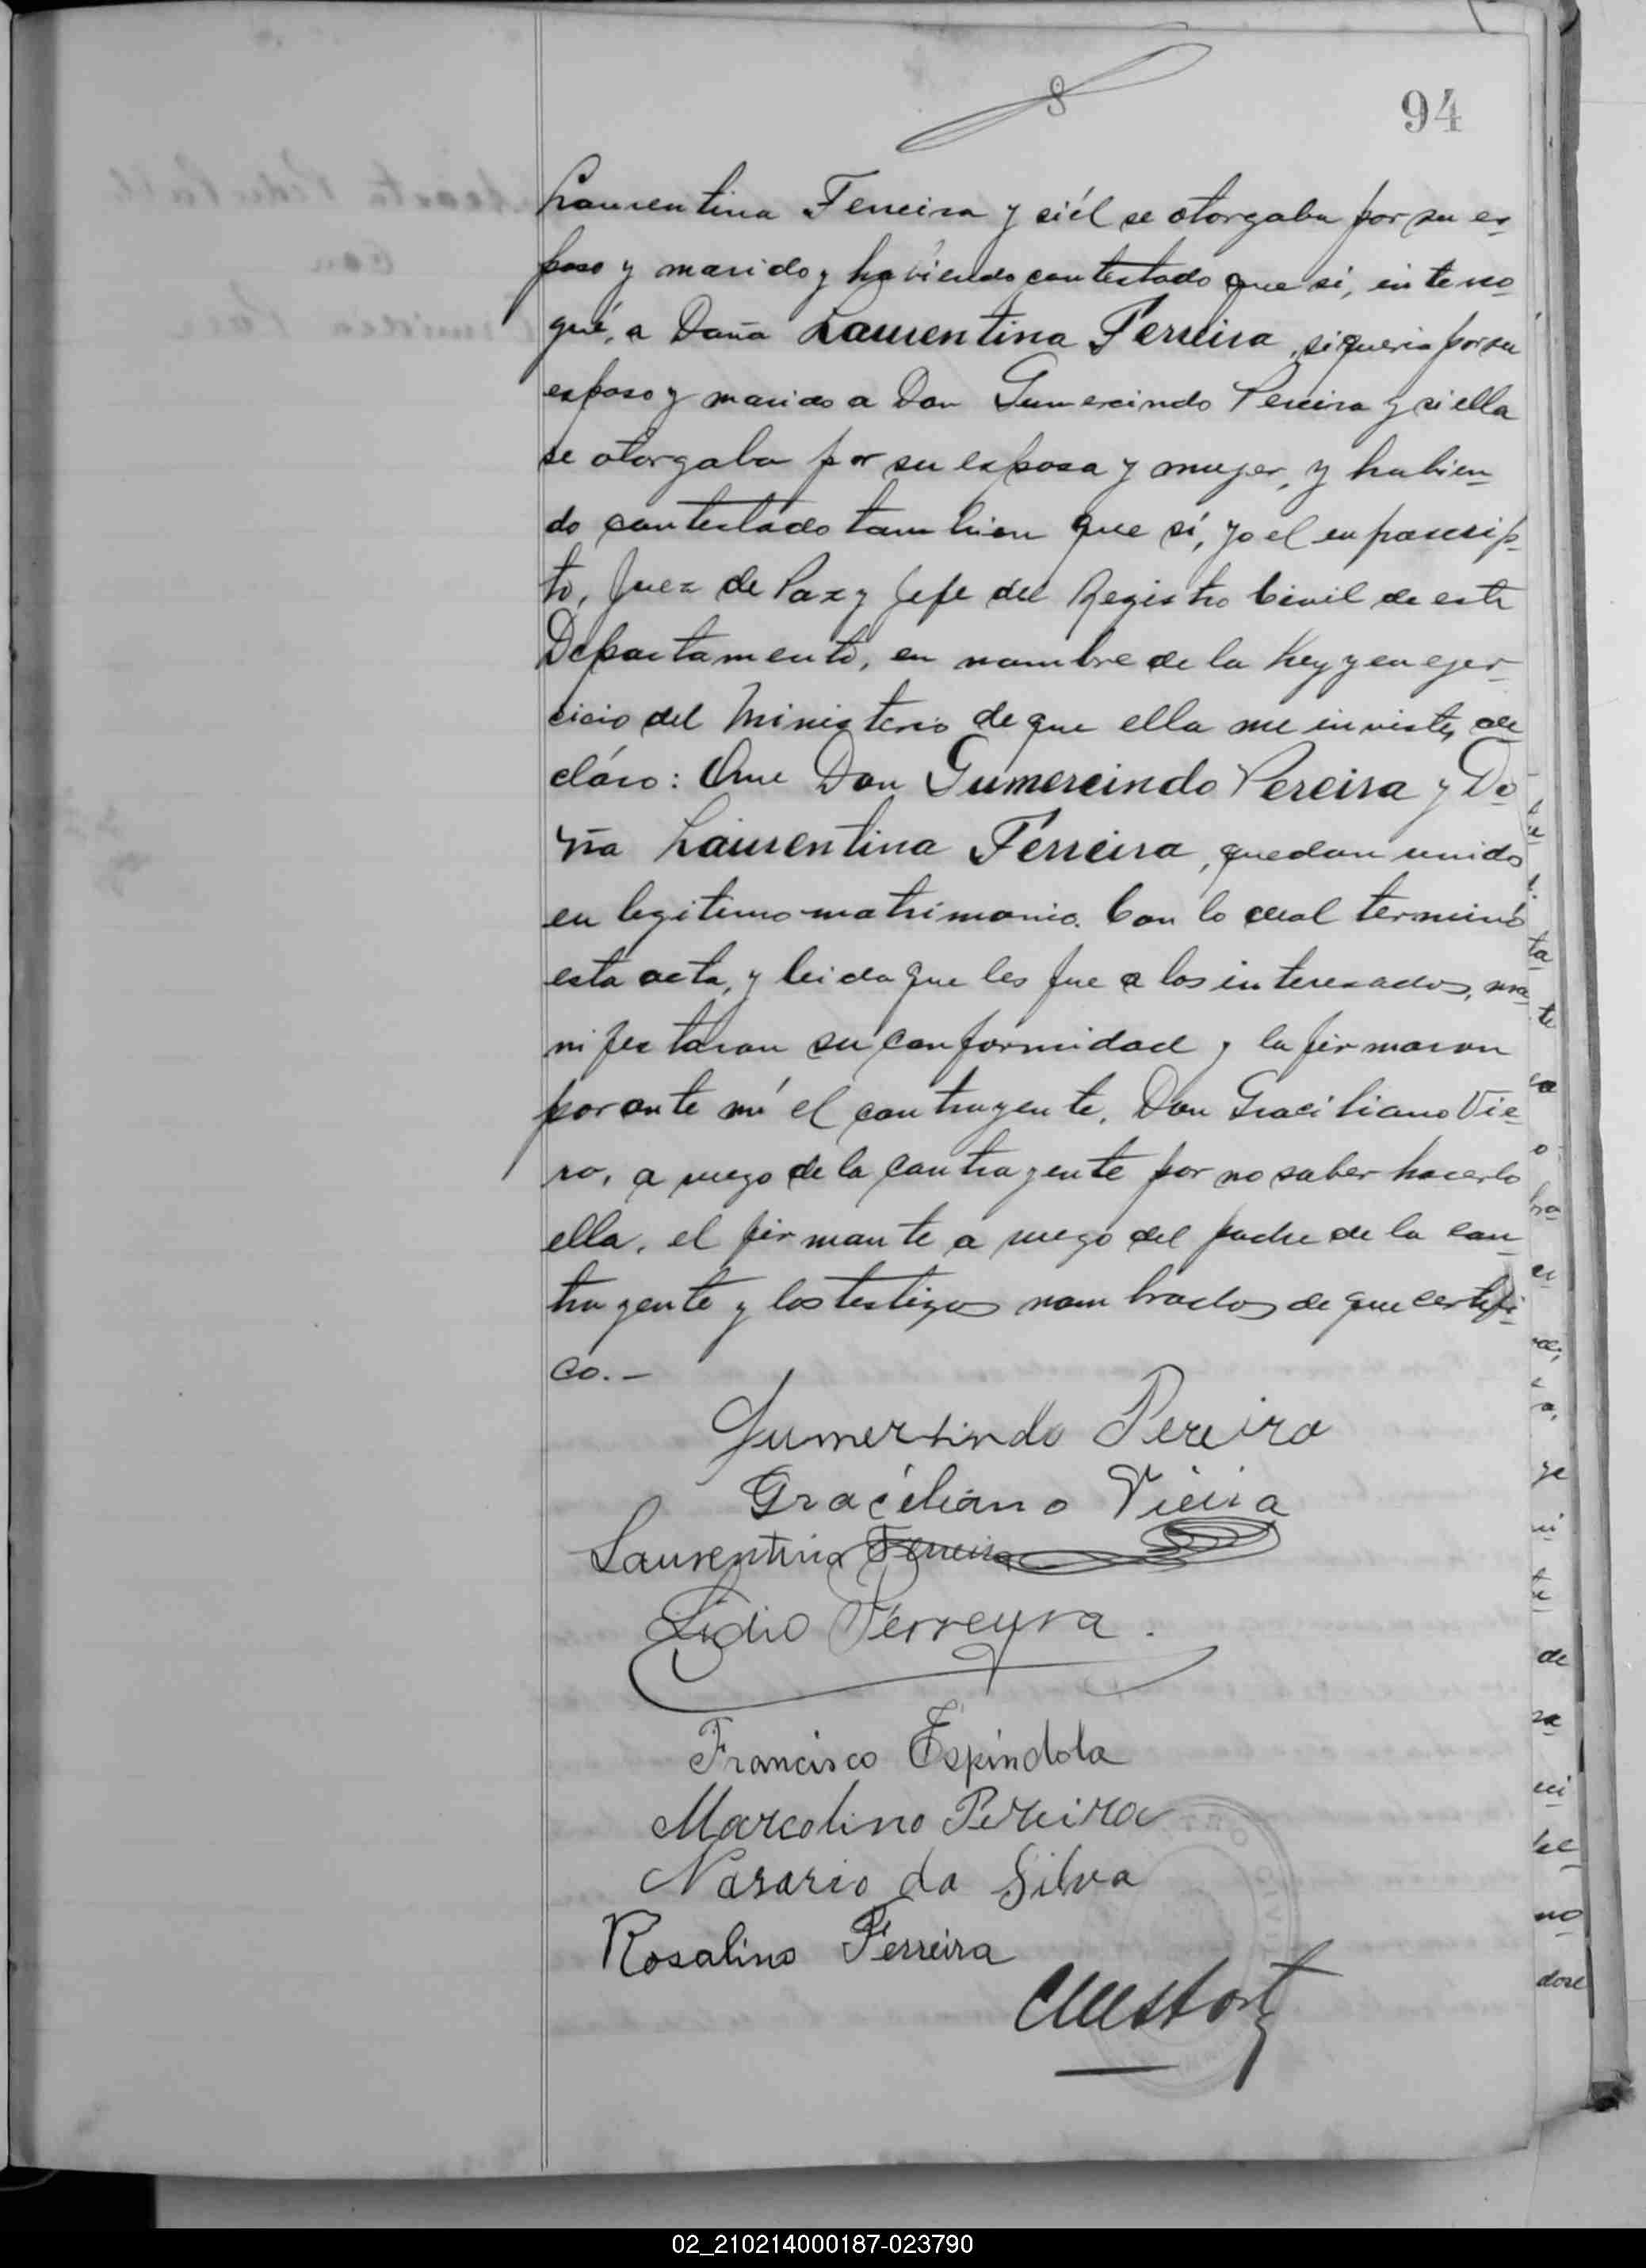 8
94
Laurentina Ferreira y si él se otorgaba por su es-
poso y marido y habiendo contestado que si, interro-
gué, a Doña Laurentina Ferreira, si queria por su
esposo y marido a Don Gumercindo Pereira y si ella
se otorgaba por su esposa y mujer, y habien-
do contestado tambien que sí, yo el enfrascrip-
to, Juez de Paz y Jefe del Registro Civil de este
Departamento, en nombre de la Ley y en ejer-
cicio del Ministerio de que ella me inviste, de-
cláro: Que Don Gumercindo Pereira y Do-
ña Laurentina Ferreira, quedan unidos
en legitimo matrimonio. Con lo cual terminó
esta acta, y leida que les fue a los interesados, ma-
nifestaron su conformidad y la firmaron
por ante mí el contrayente, Don Graciliano Vie-
ra, a ruego de la contrayente por no saber hacerlo
ella, el firmante a ruego del padre de la con-
trayente y los testigos nombrados de que certifi-
co.-
Gumersindo Pereira
Graciliano Vieira
Laurentina Ferreira
Lidio Ferreyra.
Francisco Espindola
Marcolino Pereira
Nasario da Silva
Rosalino Ferreira
02_210214000187-023790